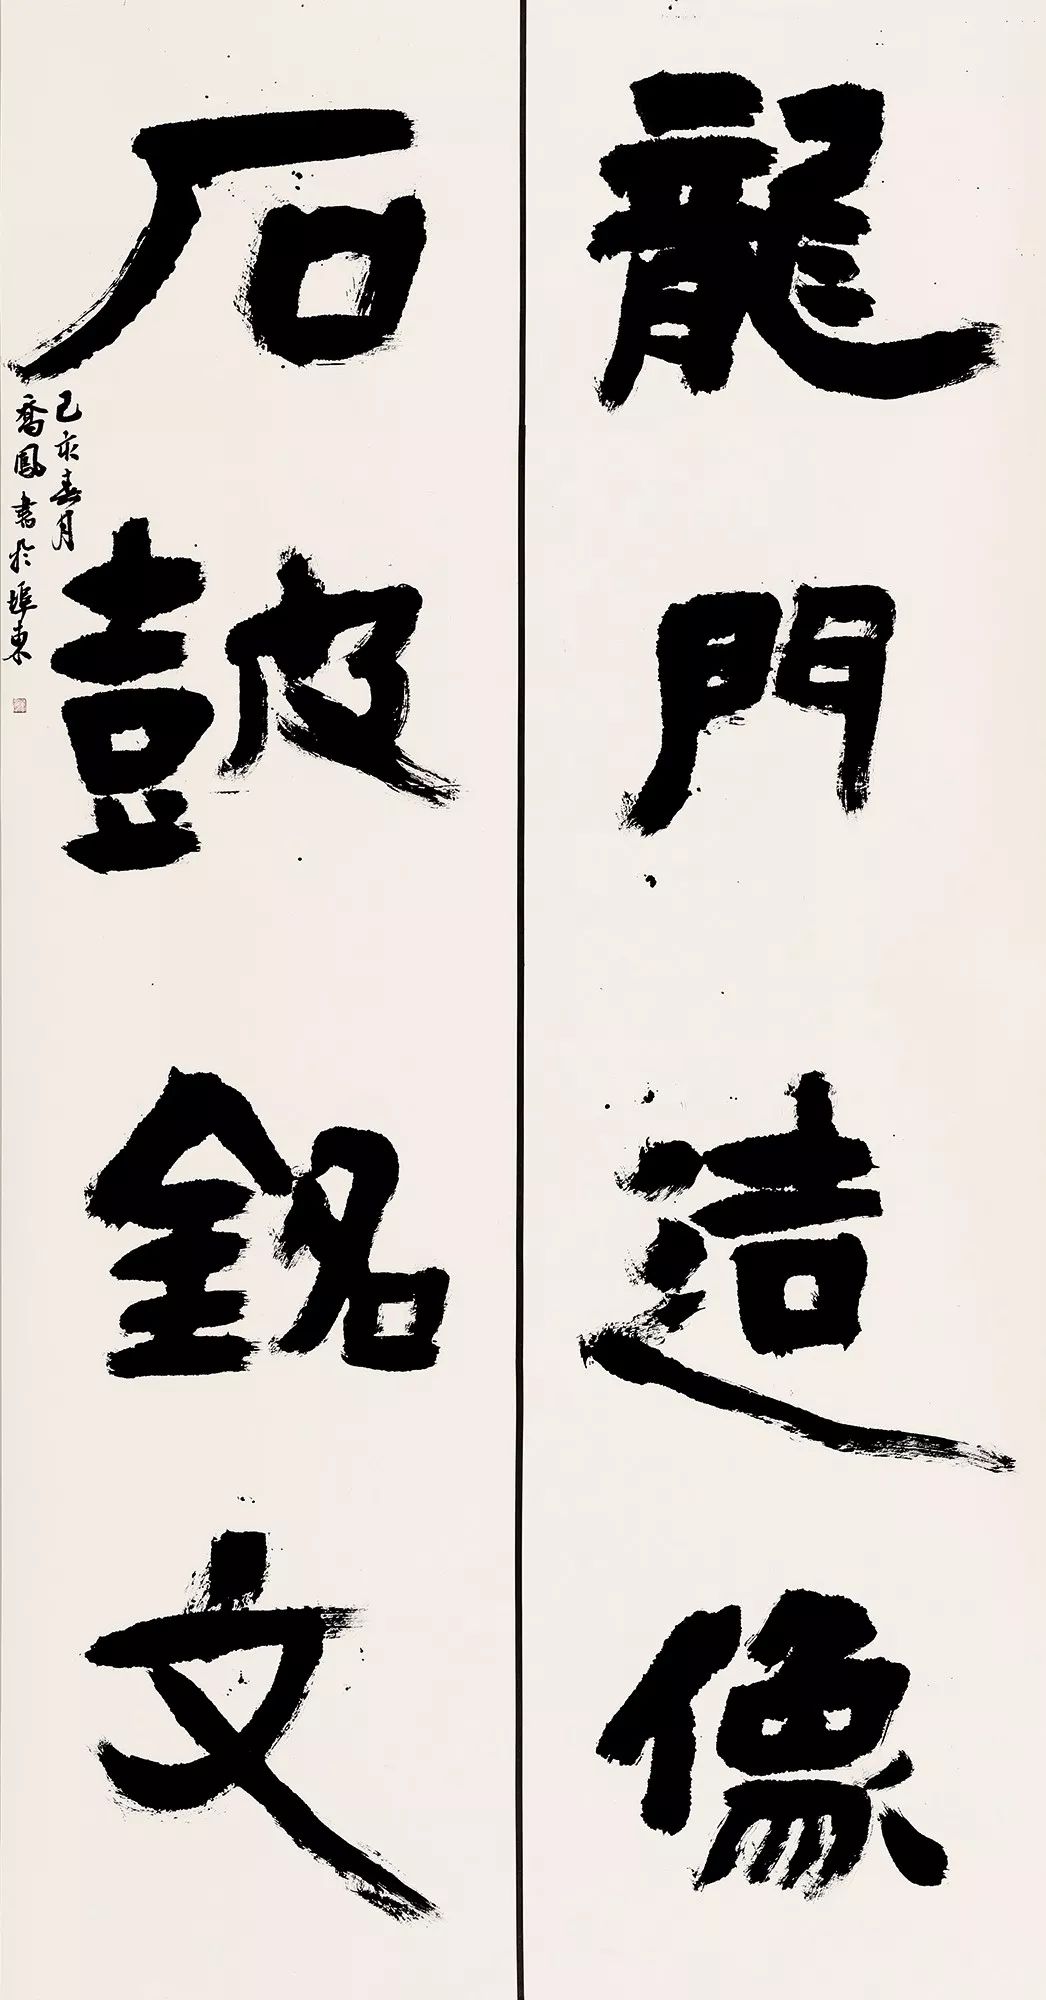 龍門造像
石鼓銘文
己亥春月
喬鳳書於埠東